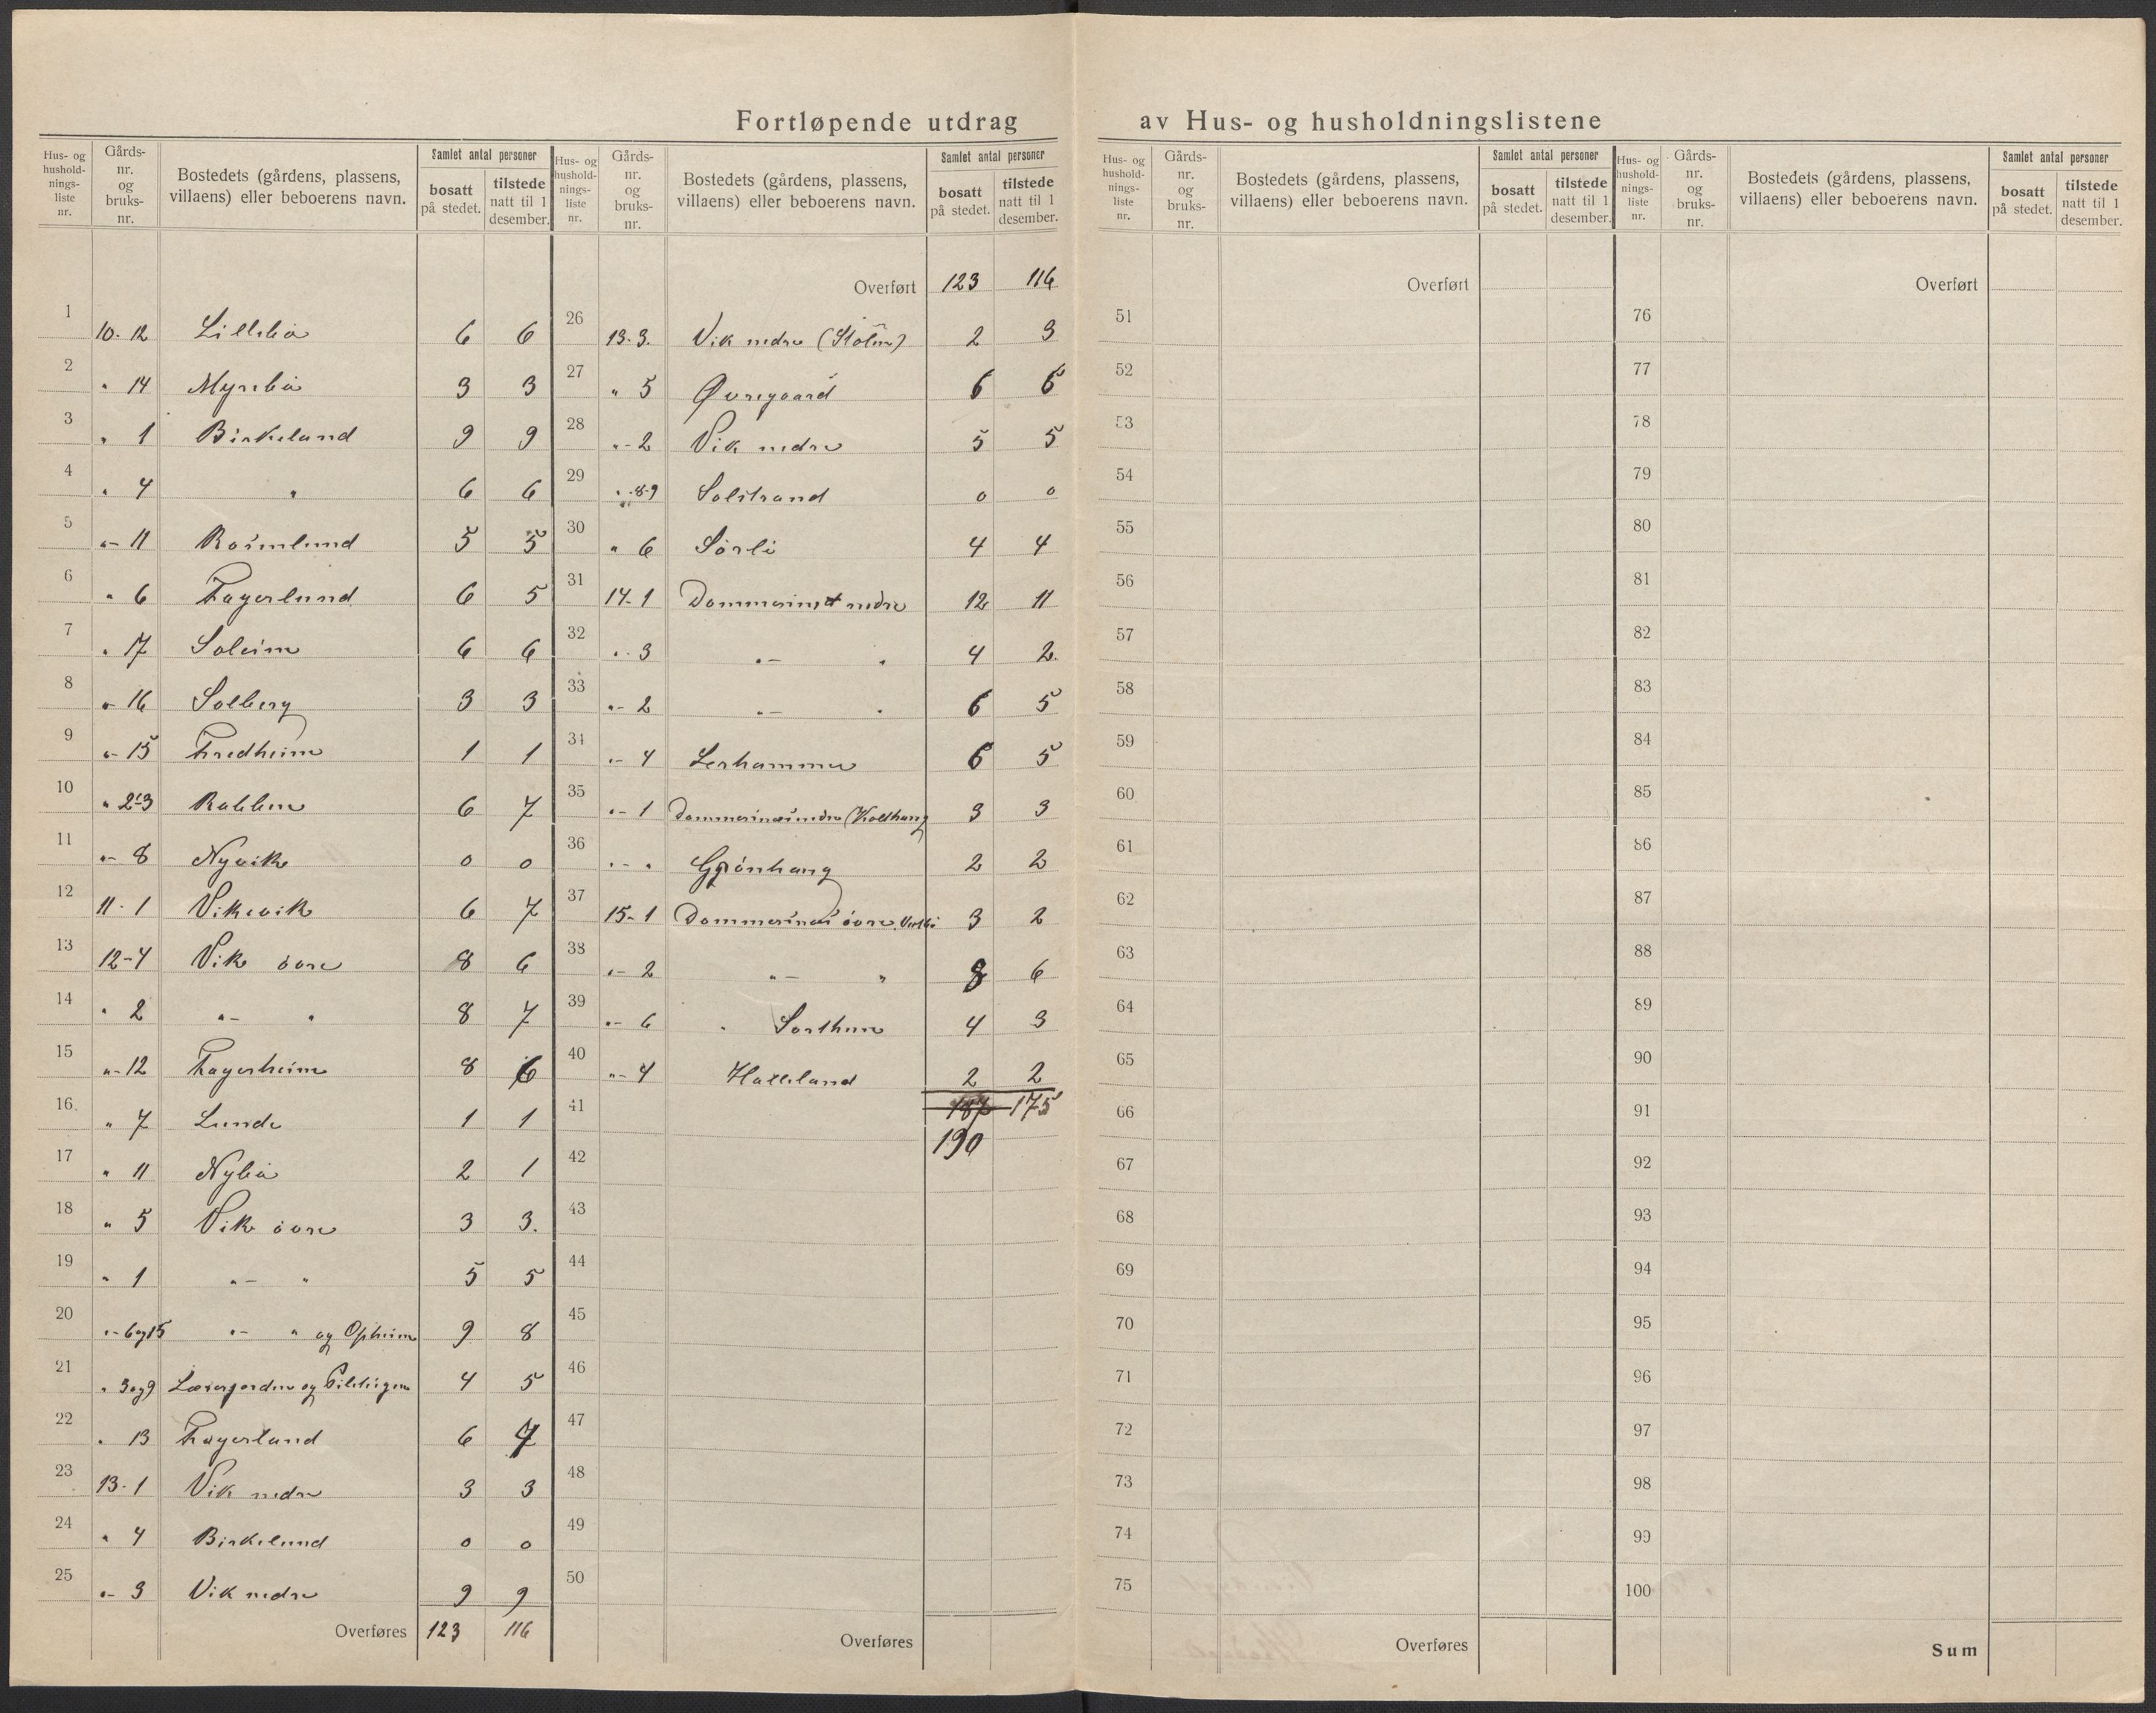 Fortløpende utdrag av Hus- og husholdningslistene
Hus- og hushold-nings-liste nr. Gårds-nr. og bruks-nr. Bostedets (gårdens, plassens, villaens) eller beboerens navn. Samlet antal personer bosatt på stedet. tilstede natt til 1 desember.
1 10-12 Lillebø 6 6
2 " 14 Myrebø 3 3
3 " 1 Birkeland 9 9
4 " 4 " 6 6
5 "- 11 Rosenlund 5 5
6 " 6 Fagerlund 6 5
7 " 17 Soleim 6 6
8 "- 16 Solberg 3 3
9 "- 15 Fredheim 1 1
10 " 2-3 Rabben 6 7
11 "- 8 Nyvik 0 0
12 11-1 Vikevik 6 7
13 12-4 Vik øvre 8 6
14 " 2 "- " 8 7
15 "-12 Fagerheim 8 6
16 " 7 Lunde 1 1
17 " 11 Nybø 2 1
18 " 5 Vik øvre 3 3.
19 " 1 "- " 5 5
20 "-6og15 "- " og Opheim 9 8
21 " 3og9 og 4 5
22 " 13 Fagerland 6 7
23 13-1 Vik nedre 3 3
24 " 4 Birkelund 0 0
25 "- 3 Vik nedre 9 9
Overføres 123 116
Hus- og hushold-nings-liste nr. Gårds-nr. og bruks-nr. Bostedets (gårdens, plassens, villaens) eller beboerens navn. Samlet antal personer bosatt på stedet. tilstede natt til 1 desember.
Overført 123 116
26 13-3. Vik nedre (Stølen) 2 3
27 " 5 Øvregaard 6 6
28 "-2 Vik nedre 5 5
29 "-8-9 Solstrand 0 0
30 " 6 Sørli 4 4
31 14-1 nedre 12 11
32 "- 3 "- " 4 2.
33 "- 2 "- " 6 5
34 "- 4 Lerhammer 6 5
35 "- 1 3 3
36 "- " Grønhaug 2 2
37 15-1 øvre 3 2
38 "- 2 "- " 8 6
39 "- 6 " 4 3
40 "- 4 Halleland 2 2
41 187 175
190
42
43
44
45
46
47
48
49
50
Overføres
Hus- og hushold-nings-liste nr. Gårds-nr. og bruks-nr. Bostedets (gårdens, plassens, villaens) eller beboerens navn. Samlet antal personer bosatt på stedet. tilstede natt til 1 desember.
Overført
51
52
53
54
55
56
57
58
59
60
61
62
63
64
65
66
67
68
69
70
71
72
73
74
75
Overføres
Hus- og hushold-nings-liste nr. Gårds-nr. og bruks-nr. Bostedets (gårdens, plassens, villaens) eller beboerens navn. Samlet antal personer bosatt på stedet. tilstede natt til 1 desember.
Overført
76
77
78
79
80
81
82
83
84
85
86
87
88
89
90
91
92
93
94
95
96
97
98
99
100
Sum